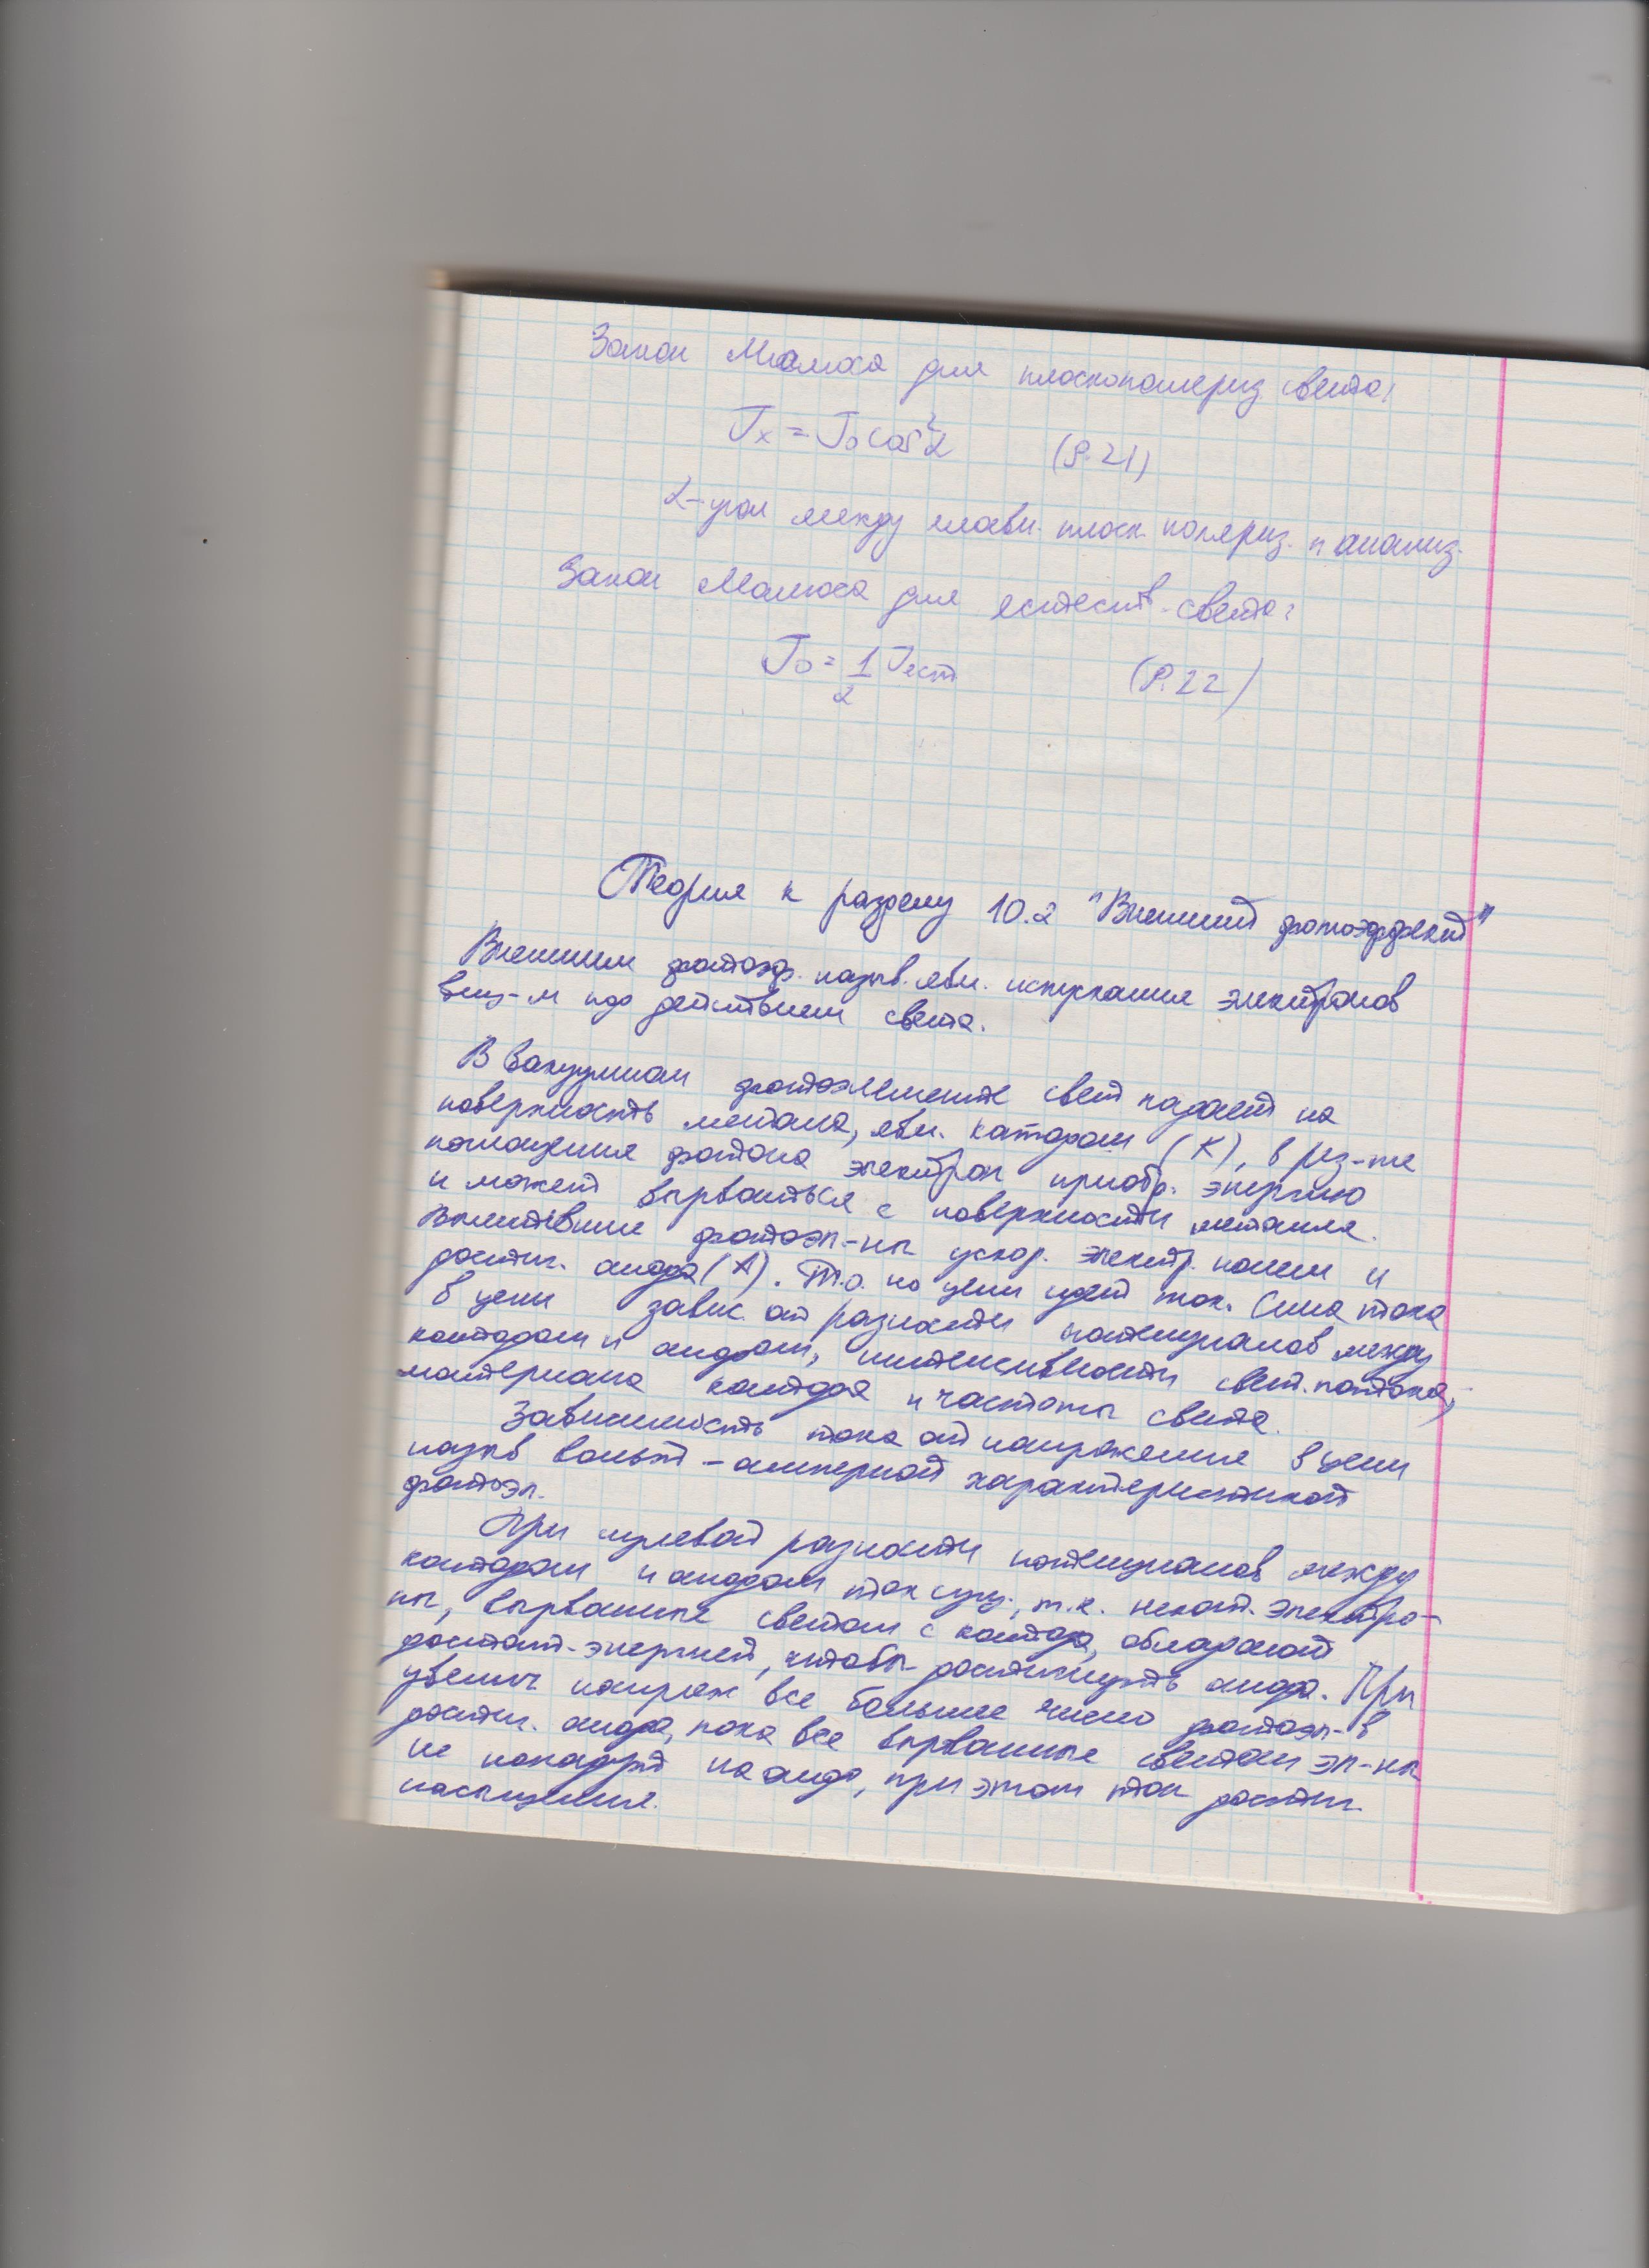 Закон Малюса для плоскополяриз. света:
Jх = J₀cos²α (9.21)
α-угол между главн. плоск. поляриз. и анализ.
Закон Малюса для естеств. света:
J₀ = 1/2 Jест (9.22)
Теория к разделу 10.2 "Внешний фотоэффект"
Внешним фотоэф. назыв. явл. испускания электронов
вещ-м под действием света.
В вакуумном фотоэлементе свет падает на
поверхность метала, явл. катодом (К), в рез-те
поглощения фотона электрон приобр. энергию
и может вырваться с поверхности металла.
Вылетевшие фотоэл-ны ускор. электр. полем и
достиг. анода (А). Т.о. по цепи идет ток. Сила тока
в цепи завис. от разности потенциалов между
катодом и анодом, интенсивности свет. потока,
материала катода и частоты света.
Зависимость тока от напряжения в цепи
назыв вольт-амперной характеристикой
фотоэл.
При нулевой разности потенциалов между
катодом и анодом ток сущ., т.к. некот. электро-
ны, вырванные светом с катода, обладают
достат. энергией, чтобы достигнуть анода. При
увелич напряж все большее число фотоэл-в
достиг. анода, пока все вырванные светом эл-ны
не попадут на анод, при этом ток достиг.
насыщения.